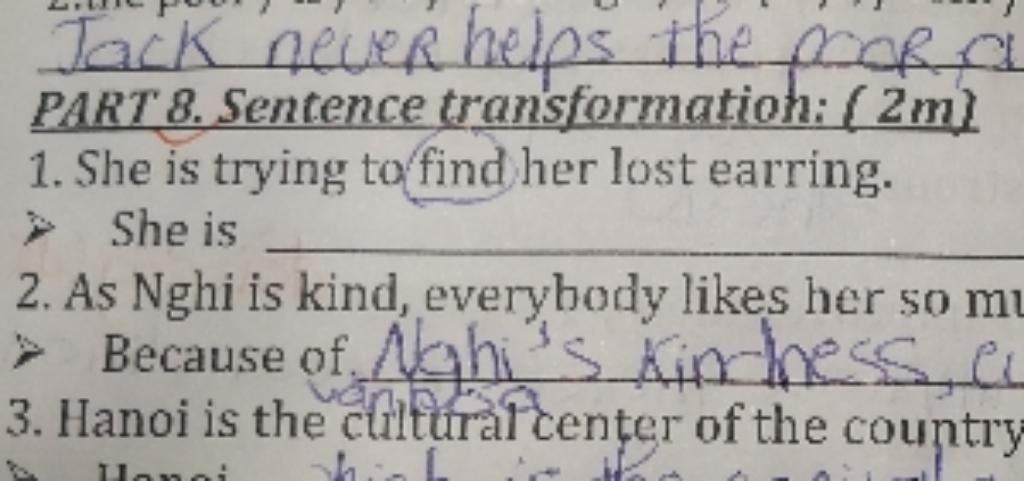 Jack never helps the poor
PART 8. Sentence transformation: ( 2m)
1. She is trying to find her lost earring.
➢ She is
2. As Nghi is kind, everybody likes her so
➢ Because of Nghi's kindness,
3. Hanoi is the cultural center of the country
➢ Hanoi is the